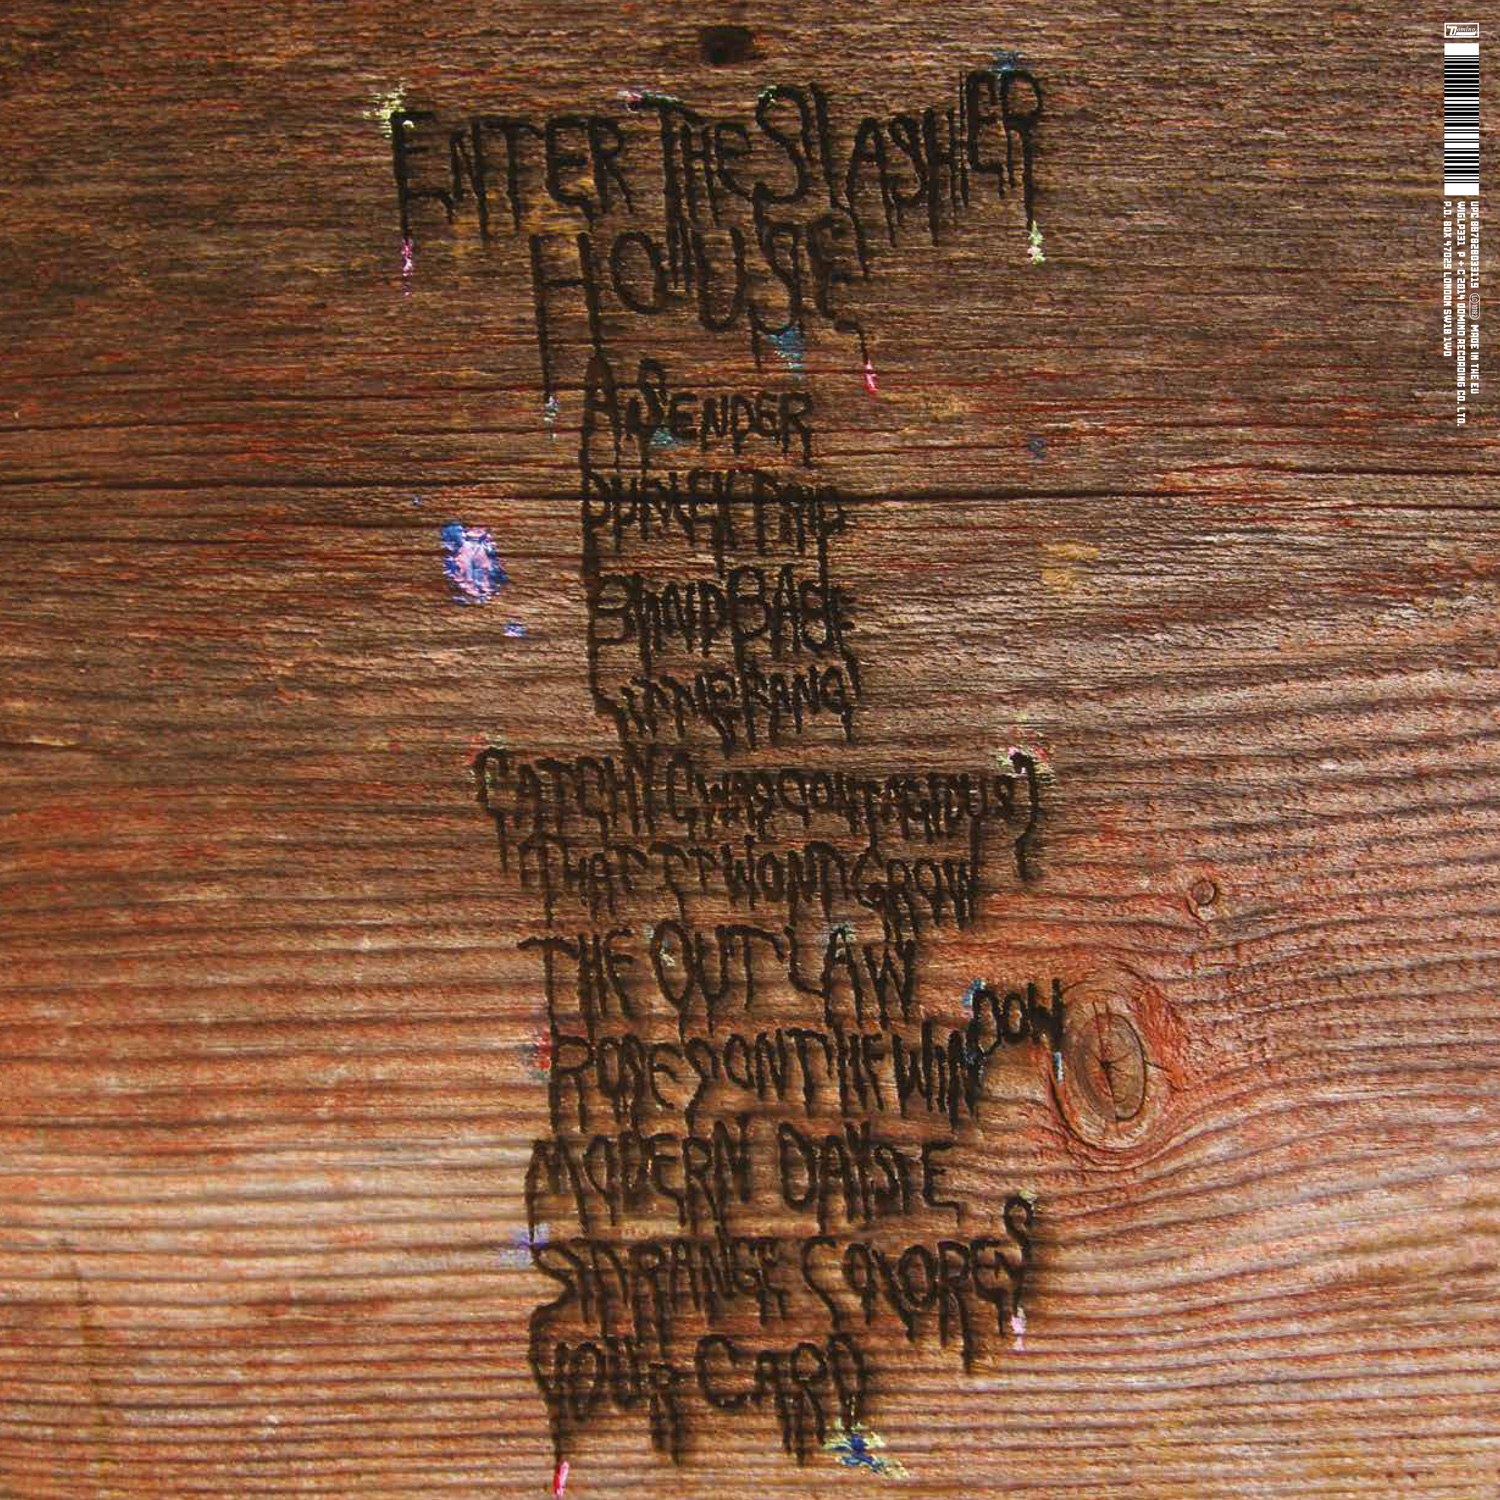 ENTER THE SLASHER
HOUSE
A SENDER
DUPLEX TRIP
BLIND BABE
LITTLE FANG
CATCHY (WAS CONTAGIOUS)
THAT IT WON'T GROW
THE OUTLAW
ROSES ON THE WINDOW
MODERN DAYS E
STRANGE COLORES
YOUR CARD
Domino
UPC 887828033119 MADE IN THE EU
WIGLP331 P + C 2014 DOMINO RECORDING CO. LTD.
P.O. BOX 47029 LONDON SW18 1WD